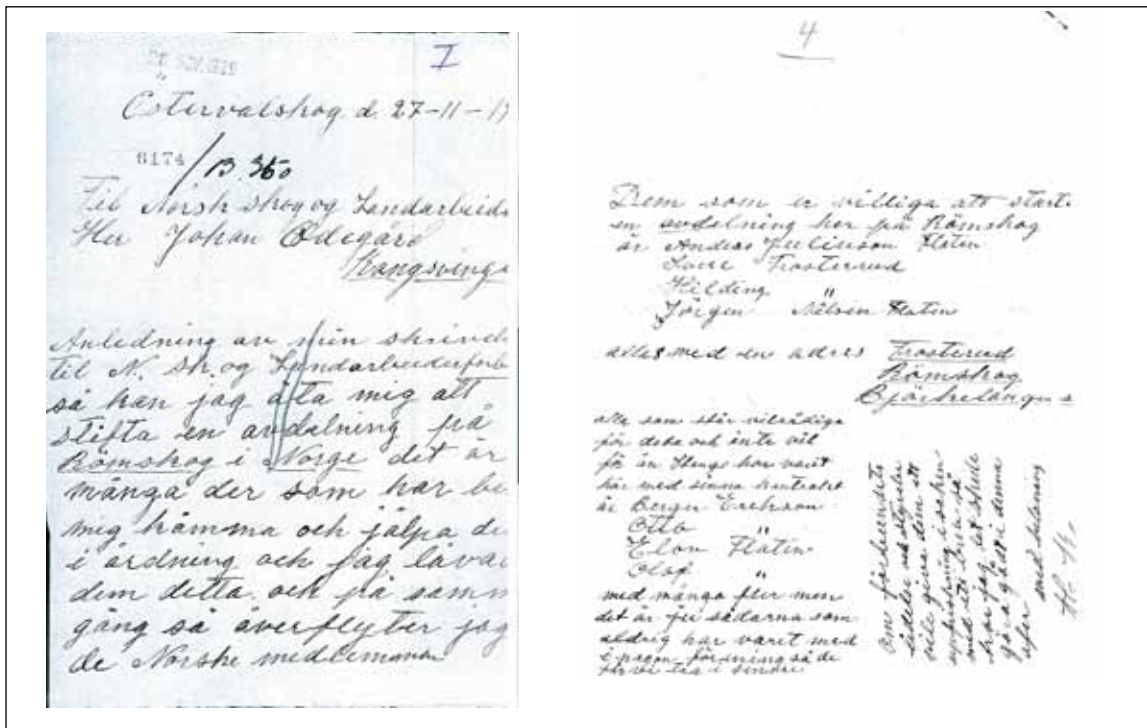 I
Östervalskog d. 27-11-19
6174 / B. 350
Til Norsk skog og Landarbeid
Her Johan Ødegård
Kongsvinge
Anledning av min skrivel
til N. sk. og Landarbeiderforb
så kan jag åta mig att
stifta en avdelning på
Römskog i Norge det är
många der som har be
mig komma och jälpa de
i ordning och jag lovar
dem detta och på samm
gång så överflyter jag
de Norske medlemmar
4
Dem som er villiga att starta
en avdelning her på Römskog
är Anders Julinson Flaten
Trosterud
Hilding "
Jörgen Nilsen Flaten
alles med en adres Trosterud
Römskog
Björkelangen
alle som står vilrådiga
för deta och inte vil
för än Stenge har varit
här med sinna kontrakt
är Berger Erikson
Otto "
Elon Flaten
Olaf "
med många fler men
det är ju sådana som
aldrig har varit med
i nagon förening så de
får vi ta i sinare
Om förbundets
och styrelse
ville giva dem ett
i saken
med ett brev så
tror jag det skulle
göra gåt i denna
afer
med helsning